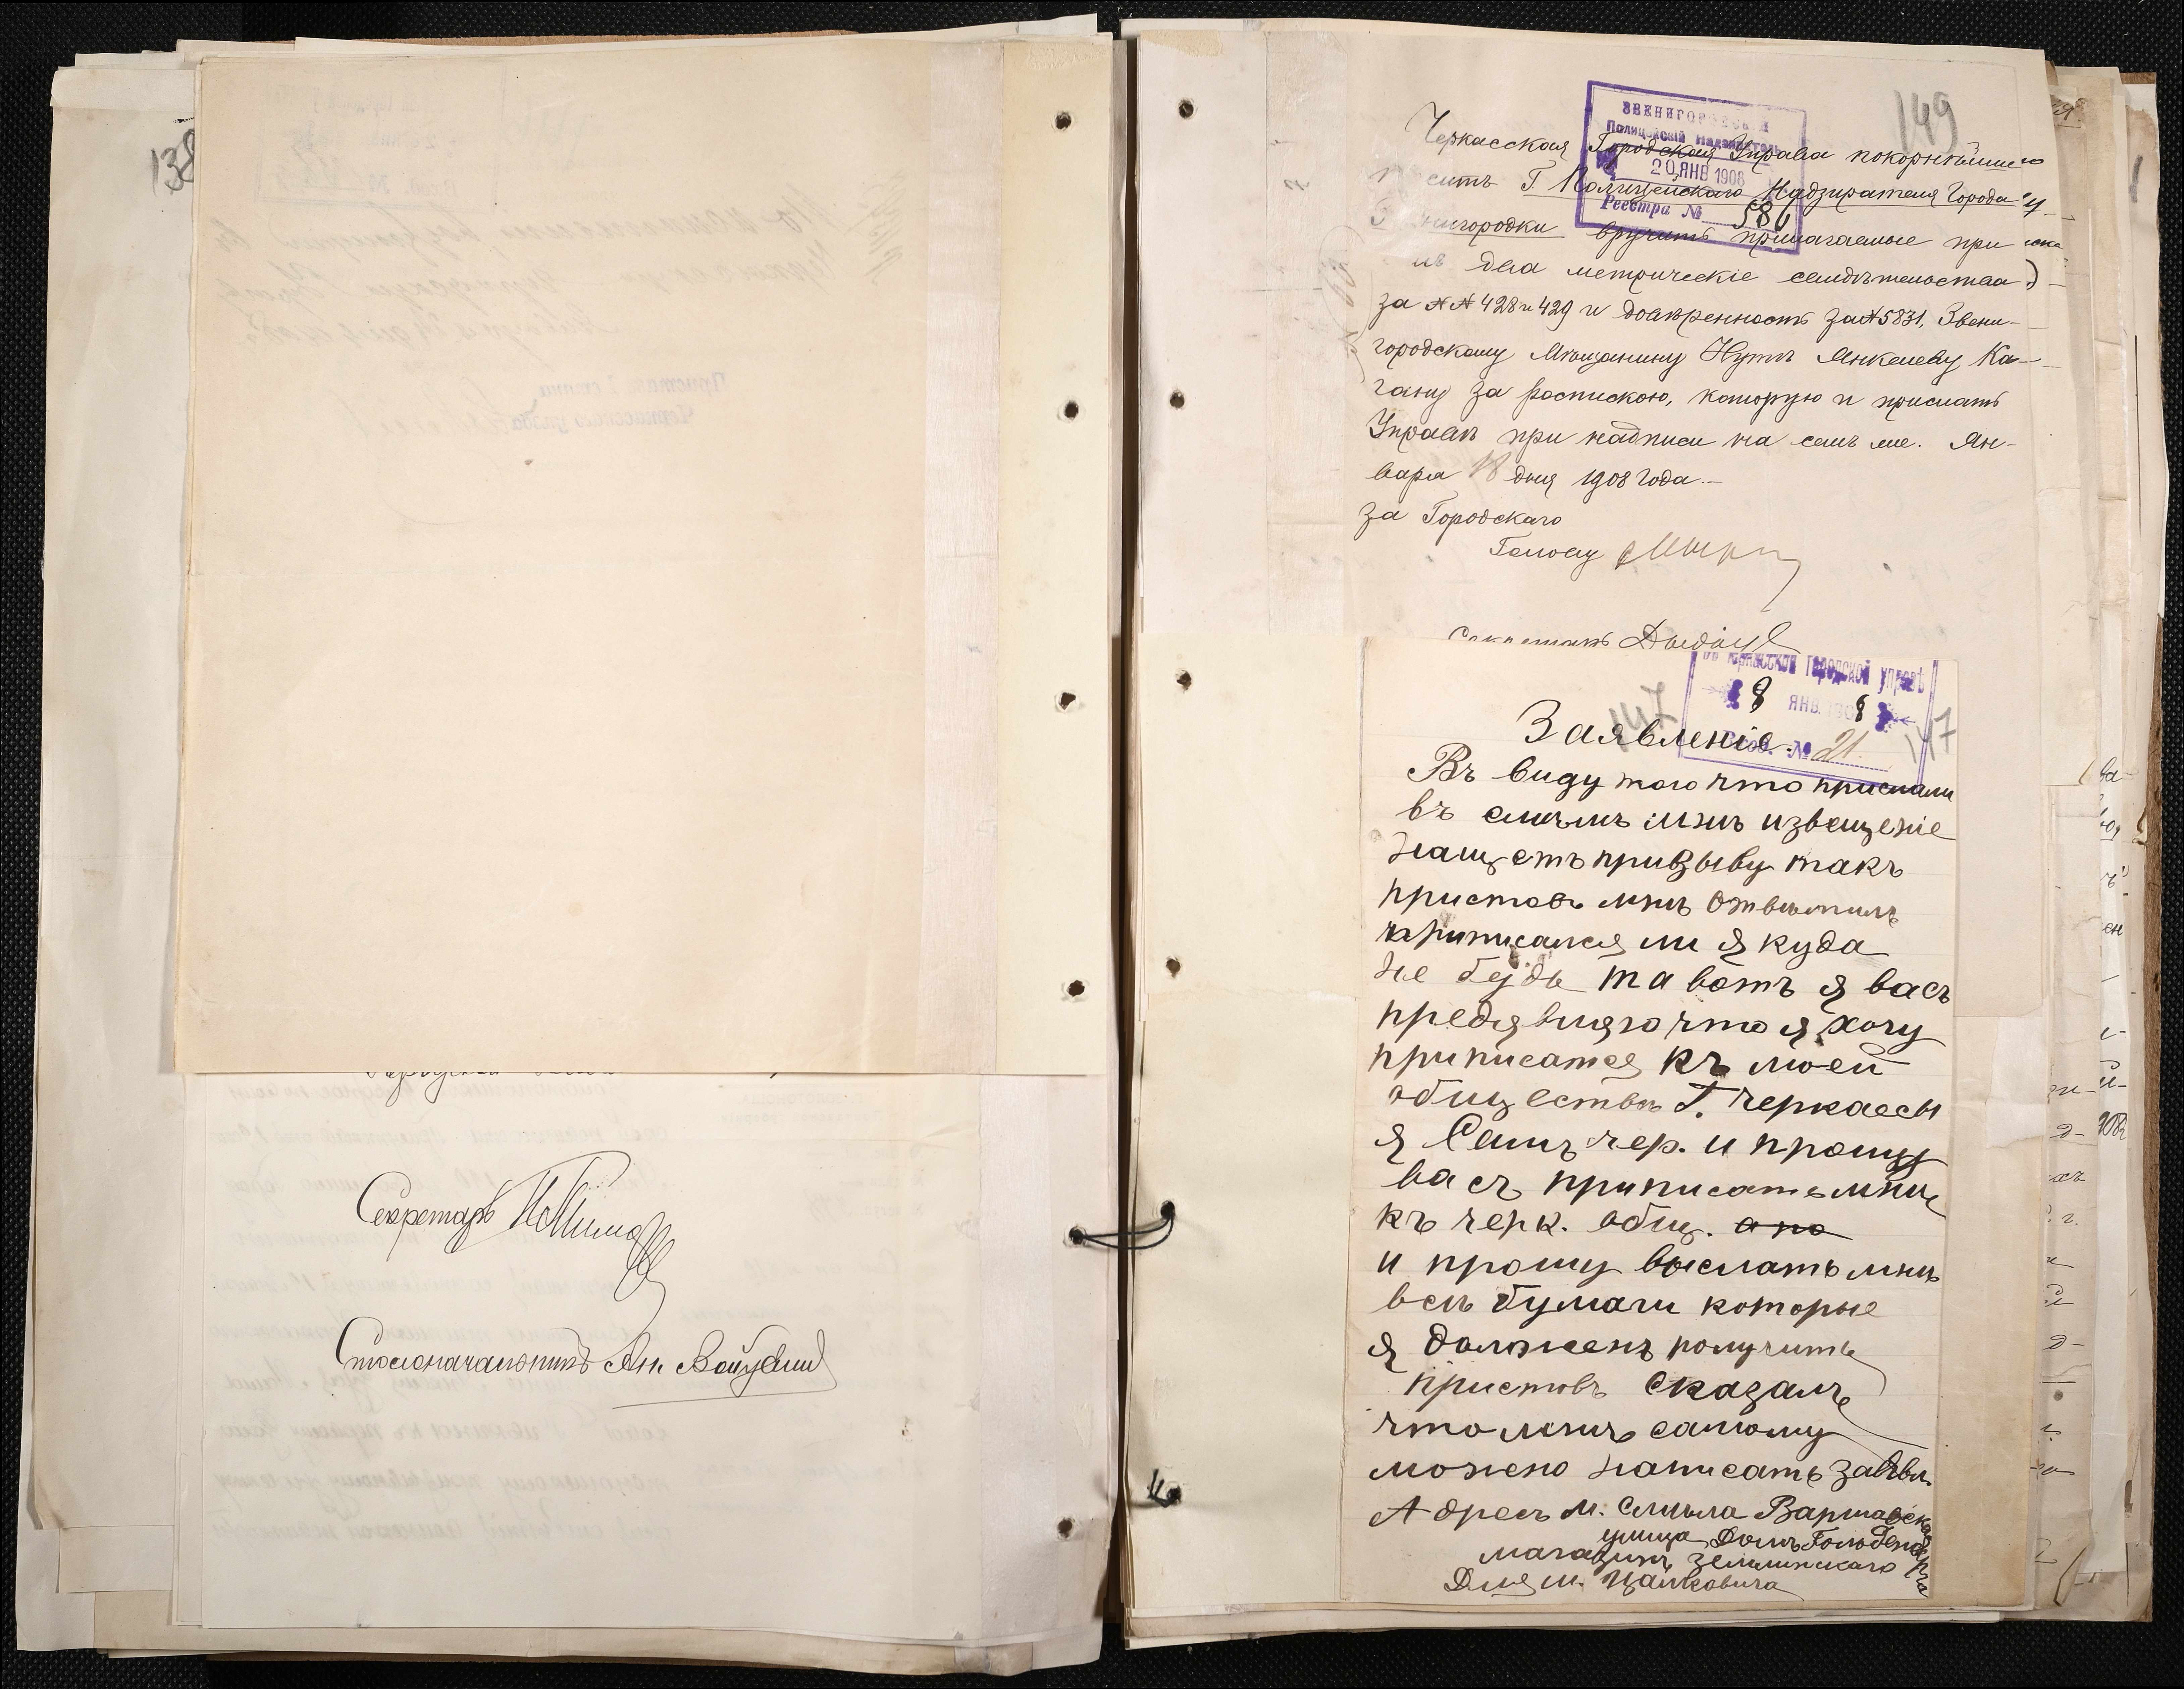 138
Секретарь
Столоначальникъ
149
ЗВЕНИГОРОДСКІЙ
Полицейскій Надзиратель
20 ЯНВ 1908
Реестра № 586
Черкасская Городская Управа покорнѣйше
Г. Полицейскаго Надзирателя Города
вручить прилагаемые при
два метрическіе свидѣтельства
за №№ 428 и 429 и довѣренность за № 5831, Звени-
городскому Мѣщанину Нутѣ Янкелеву Ка-
гану за роспискою, которую и прислать
Управѣ при надписи на семъ же. Ян-
варя 18 дня 1908 года.
За Городскаго
Голову
Секретарь
Черкасской Городской Управѣ
18 ЯНВ 1908
№ 21
147
147
Заявленіе.
Въ виду того что прислали
въ смѣлѣ мнѣ извещеніе
нащетъ призыву такъ
приставъ мнѣ ответилъ
приписался ли я куда
не будь та вотъ я васъ
предявляю что я хочу
приписатся къ моей
обществѣ Г. Черкассы
я Самъ чер. и прошу
васъ приписать мнѣ
къ черк. общ. а по
и прошу выслать мнѣ
всѣ бумаги которые
я долженъ получить
приставъ сказалъ
что мнѣ самому
можно написать заявл.
Адресъ м. Смѣла Варшавская
улица Домъ Гольденберга
магазинъ Землинскаго
Для м. Цалковича